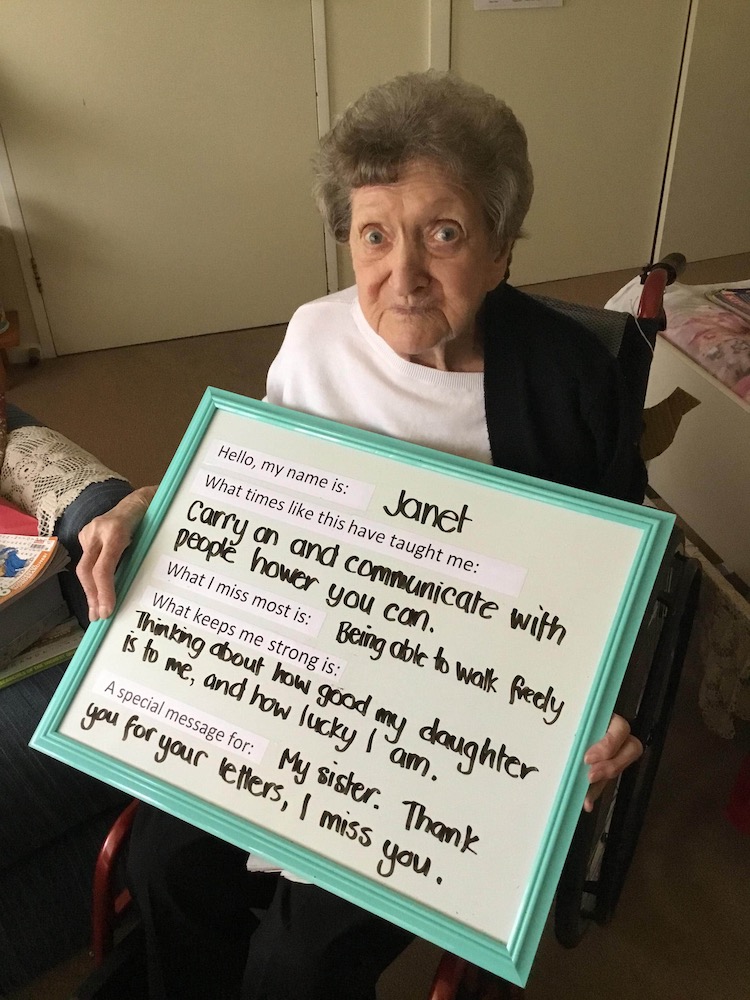 Hello, my name is: Janet
What times like this have taught me:
Carry on and communicate with
people hower you can.
What I miss most is: Being able to walk freely
What keeps me strong is:
Thinking about how good my daughter
is to me, and how lucky I am.
A special message for: My sister. Thank
you for your letters, I miss you.